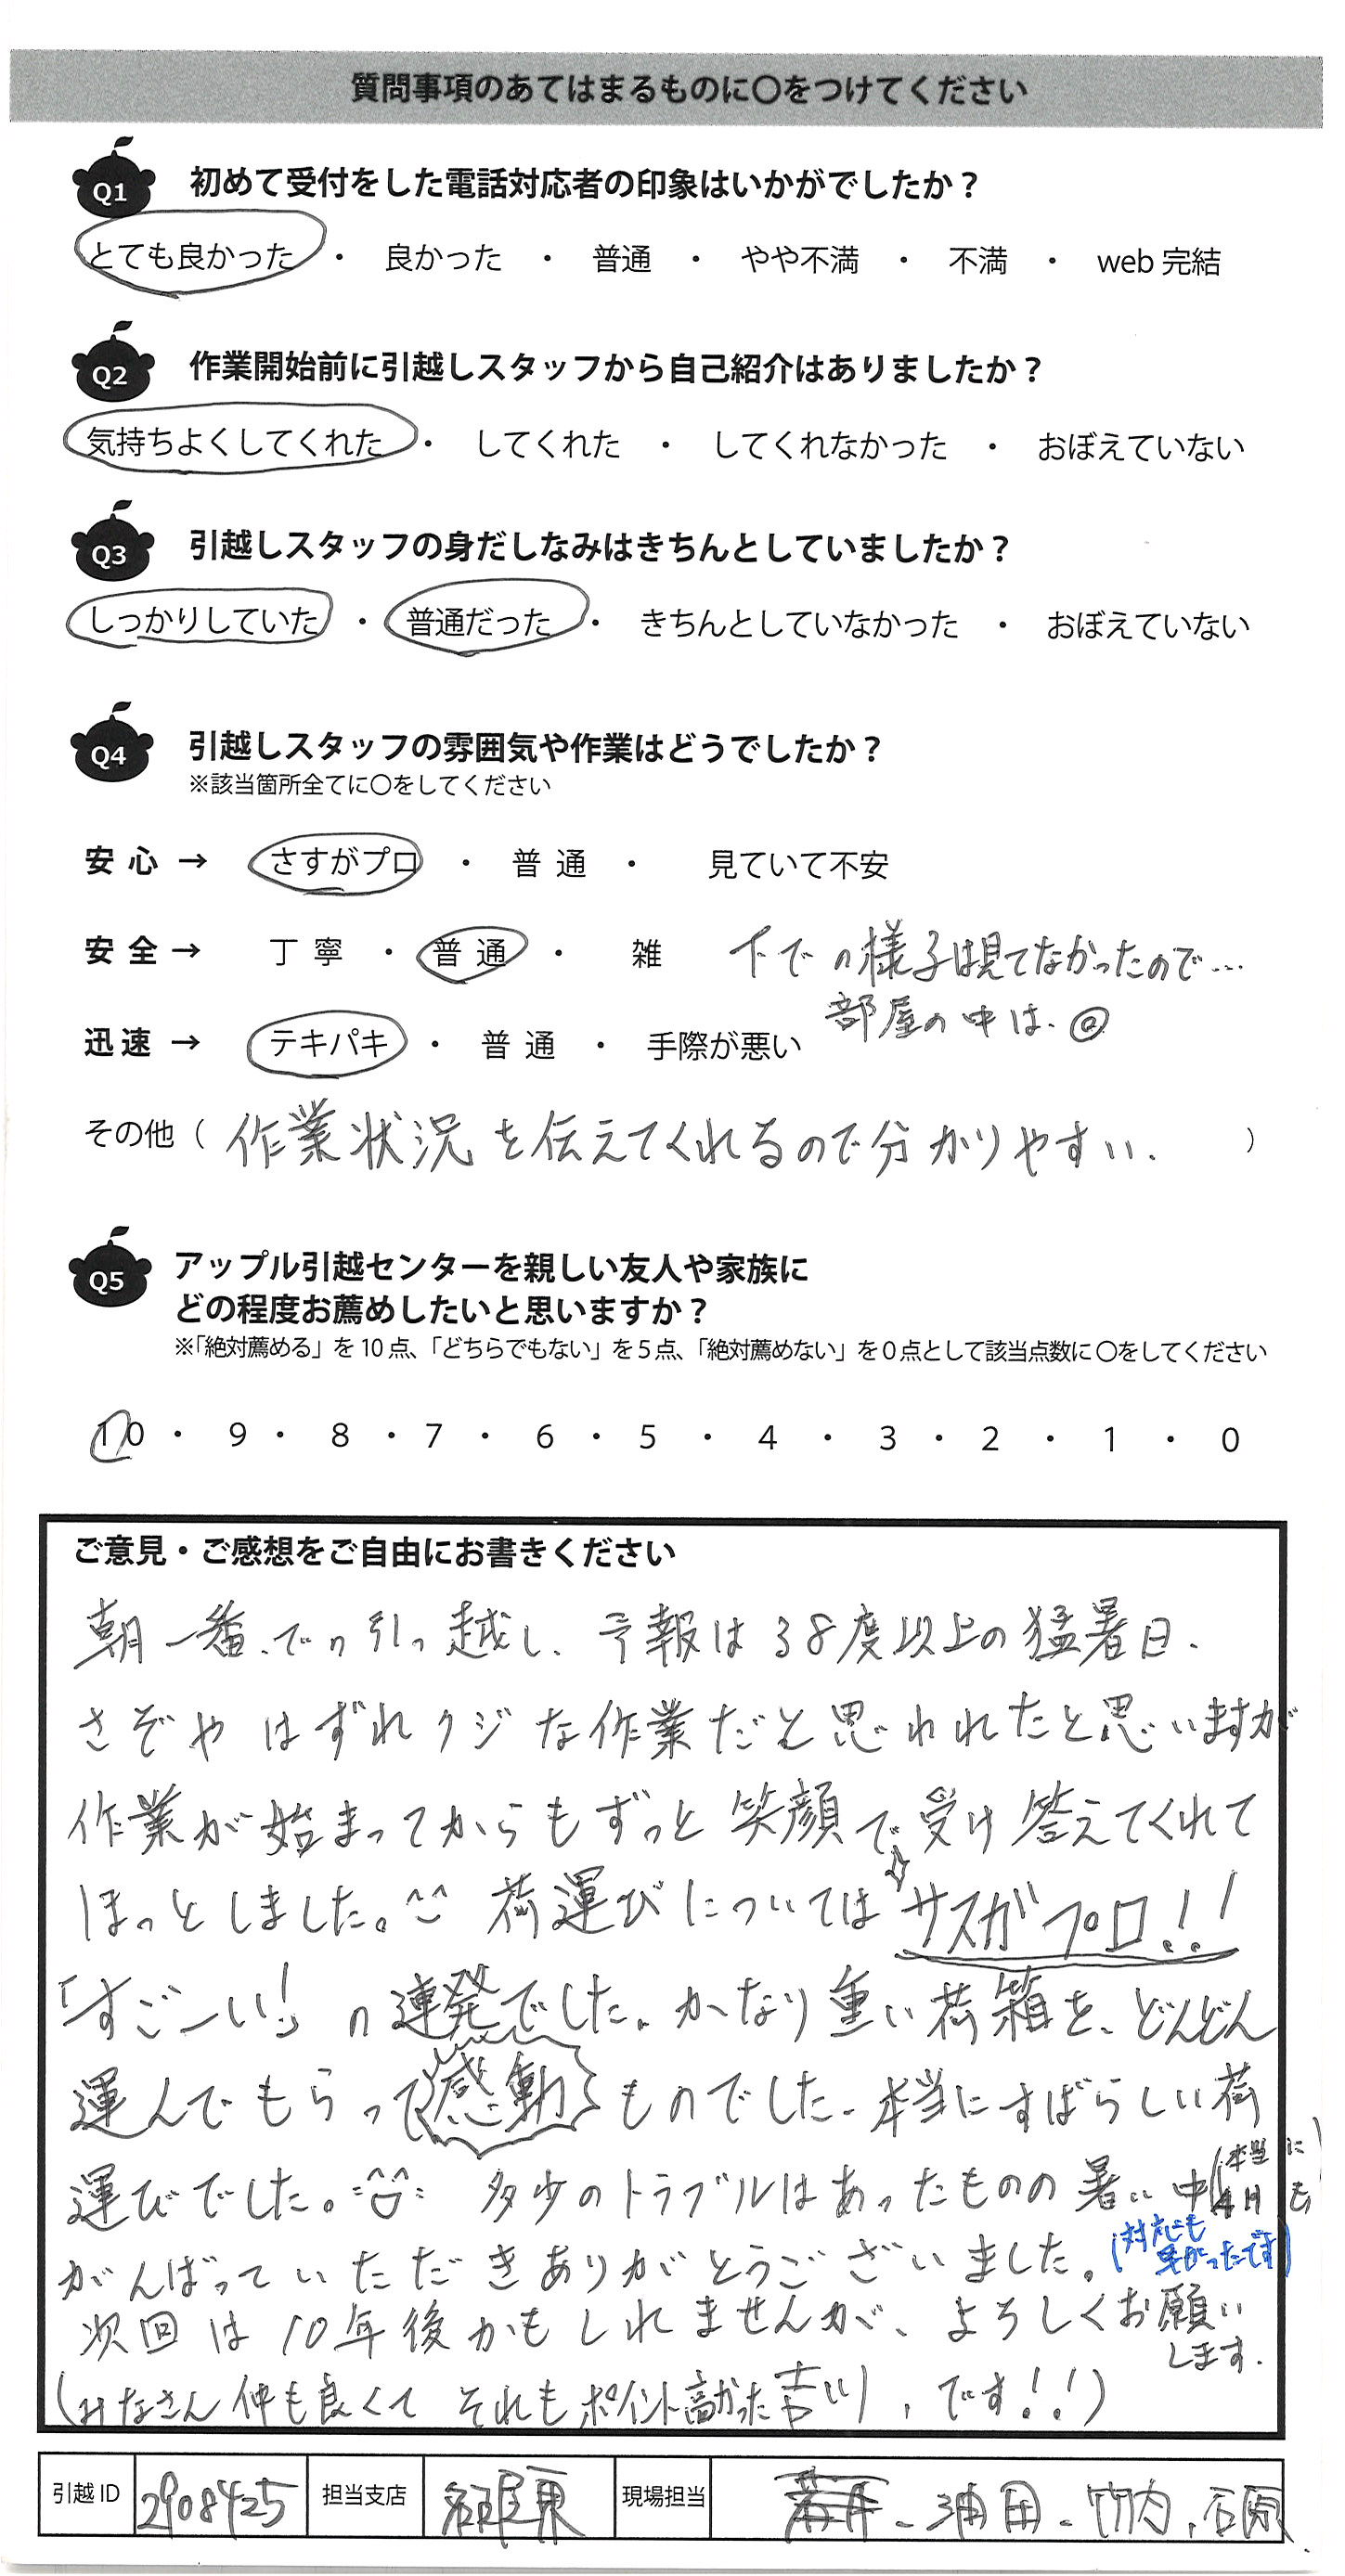 質問事項のあてはまるものに〇をつけてください
Q1 初めて受付をした電話対応者の印象はいかがでしたか？
とても良かった ・ 良かった ・ 普通 ・ やや不満 ・ 不満 ・ web 完結
Q2 作業開始前に引越しスタッフから自己紹介はありましたか？
気持ちよくしてくれた ・ してくれた ・ してくれなかった ・ おぼえていない
Q3 引越しスタッフの身だしなみはきちんとしていましたか？
しっかりしていた ・ 普通だった ・ きちんとしていなかった ・ おぼえていない
Q4 引越しスタッフの雰囲気や作業はどうでしたか？
※該当箇所全てに〇をしてください
安心 → さすがプロ ・ 普通 ・ 見ていて不安
安全 → 丁寧 ・ 普通 ・ 雑 下での様子は見てなかったので…
部屋の中は、◎
迅速 → テキパキ ・ 普通 ・ 手際が悪い
その他（ 作業状況を伝えてくれるので分かりやすい. ）
Q5 アップル引越センターを親しい友人や家族に
どの程度お薦めしたいと思いますか？
※「絶対薦める」を 10 点、「どちらでもない」を 5 点、「絶対薦めない」を 0 点として該当点数に 〇をしてください
10 ・ 9 ・ 8 ・ 7 ・ 6 ・ 5 ・ 4 ・ 3 ・ 2 ・ 1 ・ 0
ご意見・ご感想をご自由にお書きください
朝一番、での引っ越し、予報は38度以上の猛暑日、
さぞやはずれクジな作業だと思われたと思いますが
作業が始まってからもずっと笑顔で受け答えてくれて
ほっとしました。^^ 荷運びについては サスガプロ!!
「すご〜い!」の連発でした。かなり重い荷箱を、どんどん
運んでもらって感動ものでした。本当にすばらしい荷
運びでした。 多少のトラブルはあったものの暑い中(本当に
がんばっていただきありがとうございました。(対応も
早かったです)
次回は10年後かもしれませんが、よろしくお願い
します.
(みなさん仲も良くて それもポイント高かった です!!)
引越 ID 2908425 担当支店 名古屋東 現場担当 浦田、竹内、石原